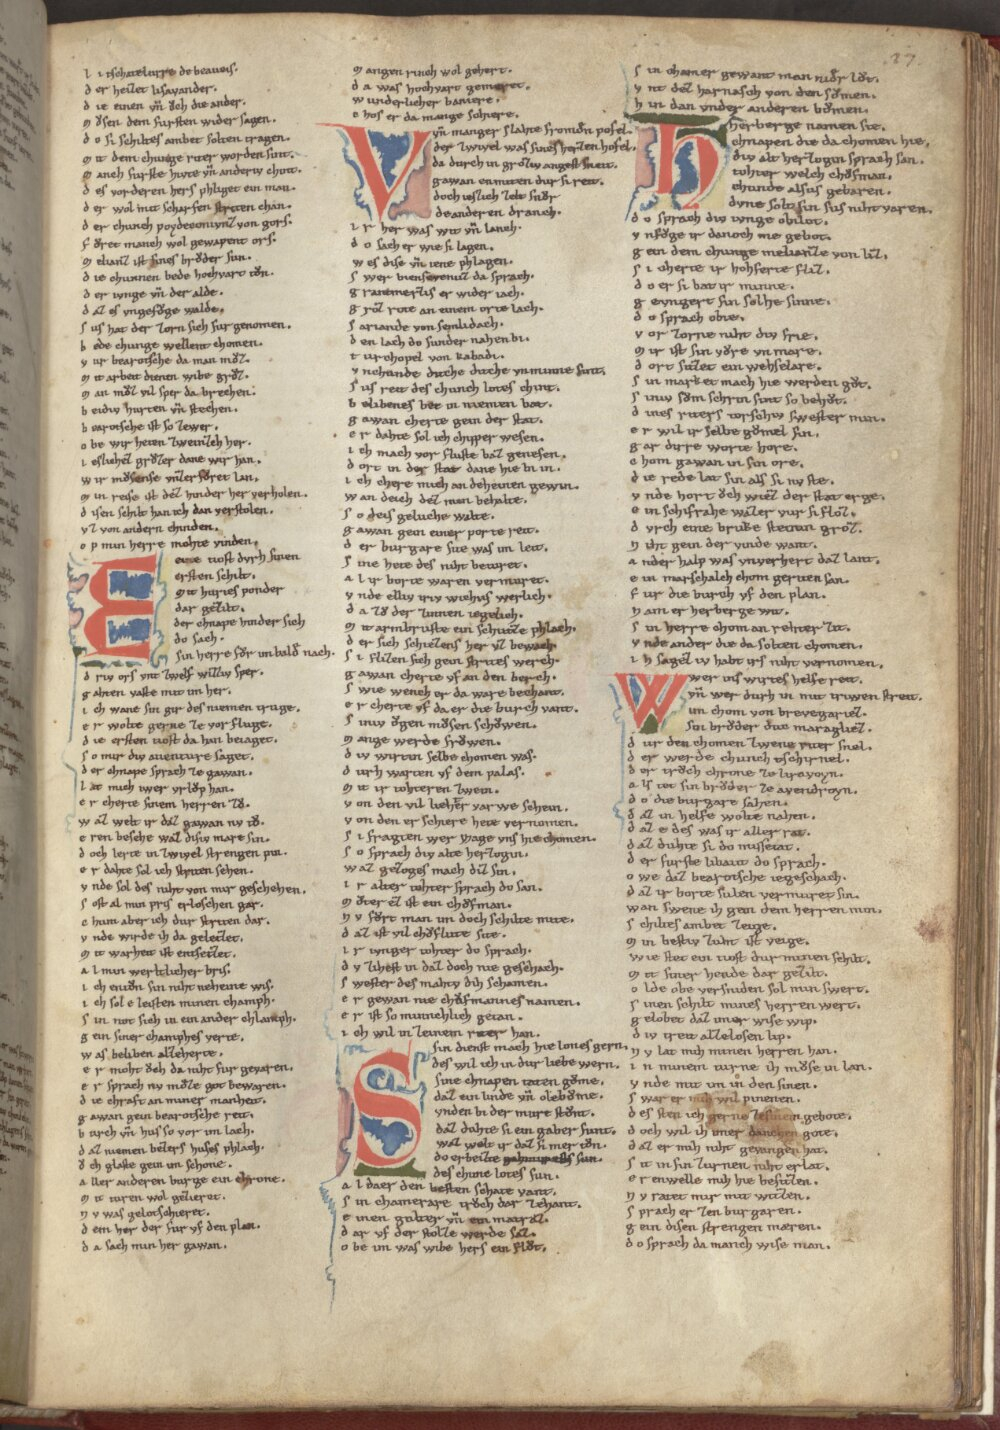 27.
l itschatelurre de beaveis.
d er heilet lisavander.
d ie einen vñ ŏch die ander.
m ŏsen dem fursten wider sagen.
d o si schiltes ambet solten tragen.
m it dem chunge riter worden sint.
m anech furste hivte vñ anderiv chint.
d es vorderen hers phliget ein man.
d er wol mit scharfen striten chan.
d er chunch poydecomvnz von gors.
f ŏret manch wol gewapent ors.
m elianz ist sines brŏder sun.
d ie chunnen bede hochvart tŏn.
d er ivnge vñ der alde.
d az es vngefŏge walde.
s us hat der zorn sich fur genomen.
b ede chunge wellent chomen.
v ur bearotsche da man mŏz.
m it arbeit dienen wibe grŏz.
m an mŏz vil sper da brechen.
b eidiv hurten vñ stechen.
b earotsche ist so zewer.
o be wir heten zweinzech her.
i eslichez grŏzer dane wir han.
w ir mŏsense vnzerfŏret lan.
m in reise ist dez hinder her verholen.
d isen schilt han ich dan verstolen.
vz von andern chinden.
o p min herre mohte vinden.
E ine tiost dvrh sinen
ersten schilt.
mit huries ponder
dar gezilt.
der chnape hinder sich
do sach.
sin herre fŏr im balđ nach.
d riv ors vnt zwelf wiziv sper.
g ahten vaste mit im her.
i ch wane sin gir des niemen truge.
e r wolte gerne ze vor fluge.
d ie ersten tiost da han beiaget.
s o mir div aventure saget.
d er chnape sprach ze gawan.
l at mich iwer vrlŏp han.
e r cherte sinem herren zŏ.
w az welt ir daz gawan nv tŏ.
e ren besehe waz disiv mare sin.
d och lerte in zwivel strengen pin.
e r dahte sol ich striten sehen.
v nde sol des niht von mir geschehen.
s ost al min pris erloschen gar.
e hum aber ich dur striten dar.
v nde wirde ih da geletzet.
m it warheit ist entsetzet.
a l min werltlicher bris.
i ch entŏn sin niht neheine wis.
i ch sol e leisten minen champh.
s in not sich in ein ander chlamph.
g ein siner champhes verte.
w as beliben alzeherte.
e r moht ŏch da niht fur gevaren.
e r sprach nv mŏze got bewaren.
d ie chraft an miner manheit.
g awan gein bearotsche reit.
b urch vñ hus so vor im lach.
d az niemen bezers huses phlach.
ŏ ch glaste gein im schone.
a ller anderen burge ein chrone.
m it turen wol gezieret.
n v was geloschieret.
d em her der fur vf den plan.
d a sach min her gawan.
m angen rinch wol gehert.
d a was hochvart gemeret.
w underlicher baniere.
c hos er da mange schiere.
V vñ manger slahte fromdŏn posel.
der zwivel was sines herzen hofel.
da durch in grŏziv angest sneit.
gawan enmiten dur si reit.
doch ieslich zelt snŏr
de anderen dranch.
i r her was wit vñ lanch.
d o sach er wie si lagen.
w es dise vñ iene phlagen.
s wer bien sevenuz da sprach.
g ramerzis er wider iach.
g rŏz rote an einem orte lach.
s ariande von semlidach.
d en lach do sunder nahen bi.
t urchopel von kabadi.
v nchunde diche dicke vnminne sint.
s us reit des chunch lotes chint.
b elibenes bet in niemen bat.
g awan cherte gein der stat.
e r dahte sol ich chipper wesen.
i ch mach vor fluste baz genesen.
d ort in der stat dane hie bi in.
i ch chere mich an deheinen gewin.
w an deich dez min behalte.
s o deis geluche walte.
gawan gein einer porte reit.
d er burgare site was im leit.
s ine hete des niht beturet.
a l ir borte waren vermuret.
v nde elliv iriv wichvs werlich.
d a zŏ der zinnen iegelich.
m it armbruste ein schutze phlach.
d er sich schiezens her vz bewach.
s i flizen sich gein strites werch.
g awan cherte vf an den berch.
s wie wench er da ware bechant.
e r cherte vf da er die burch vant.
s iniv ŏgen mŏsen schŏwen.
m ange werde frŏwen.
d iv wirtin selbe chomen was.
d urh warten vf dem palas.
m it ir tohteren zwein.
v on den vil liehter varwe schein.
v on den er schiere hete vernomen.
s i fragten wer mage vns hie chomen.
s o sprach div alte herzogin.
w az gezoges mach diz sin.
i r alter tohter sprach do san.
m ŏter ez ist ein chŏfman.
n v fŏrt man im doch schilte mite.
d az ist vil chŏflute site.
i r iunger tohter do sprach.
d v zihest in daz doch nie geschach.
s wester des mahtv dih schamen.
e r gewan nie chŏfmannes namen.
e r ist so minnechlich getan.
i ch wil in zeinem riter han.
S sin dienst mach hie lones gern.
des wil ich in dur liebe wern.
sine chnapen naten gŏme.
daz ein linde vñ oleboͮme.
vnden bi der mure stŏnt.
daz dŏhte si ein gaber funt.
waz welt ir daz si mer tŏn.
do erbeizte sun.
des chune lotes sun.
a l da er den besten schate vant.
s in chamerare trŏch dar zehant.
e inen gulter vñ ein matraz.
d ar vf der stolze werde saz.
o be im was wibe hers ein flŏt.
s in chamer gewant man nidr lŏt.
v nt dez harnasch von den sŏmen.
h in dan vnder anderen bŏmen.
H herberge namen sie.
chnapen die da chomen hie.
div alt herzogin sprach san.
tohter welch chŏfman.
chunde alsus gebaren.
dvne solt sin sus niht varen.
d o sprach div ivnge obilot.
v nfŏge ir danoch me gebot.
g ein dem chunge melianze von liz.
s i cherte ir hohferte fliz.
d o er si bat ir minne.
g evneret sin solhe sinne.
d o sprach obie.
v or zorne niht div frie.
m ir ist sin vŏre vnmare.
d ort sitzet ein wehselare.
s in market mach hie werden gŏt.
s iniv sŏm schrin sint so behŏt.
d ines riters torschiv swester min.
e r wil ir selbe gŏmel sin.
g ar dirre worte hore.
c hom gawan in sin ore.
d ie rede lat sin als si nv ste.
v nde hort ŏch wiez der stat erge.
e in schifrahe wazer vur si flŏz.
d vrch eine bruke steinin grŏz.
n iht gein der vinde want.
a nder halp was vnverhert daz lant.
e in marschalch chom geriten san.
f ur die burch vf den plan.
n am er herberge wit.
s in herre chom an rehter zit.
v nde ander die da solten chomen.
i h sagez iv habt irs niht vernomen.
W wer ins wirtes helfe reit.
vñ wer durh in mit triwen streit.
im chom von brevegariez.
sin brŏder duc maragliez.
d ur den chomen zwene riter snel.
d er werde chunch vschirnel.
d er trŏch chrone ze livoyn.
a ls tet sin brŏder ze avendroyn.
d o die burgare sahen.
d az in helfe wolte nahen.
d az e des was ir aller rat.
d az duhte si do missetat.
d er furste libaut do sprach.
o we daz bearotsche iegeschach.
d az ir borte suzen vermuret sin.
wan swene ih gein dem herren min.
s chiltes ambet zeige.
m in bestiv zuht ist veige.
w ie stet ein tiost dur minen schilt.
m it siner hende dar gezilt.
o lde obe versniden sol min swert.
s inen schilt mines herren wert.
g elobet daz imer wise wip.
d iv treit alzelosen lip.
n v lat mih minen herren han.
i n minem turne ih mŏse in lan.
v nde mit im in den sinen.
s war er mih wil pinenen.
d es sten ich gerne zesinem gebote.
d och wil ih imer danchen gote.
d az er mih niht gevangen hat.
s it in sin zurnen niht erlat.
e r enwelle mih hie besitzen.
n v ratet mir mit witzen.
s prach er zen burgaren.
g ein disen strengen mæren.
d o sprach da manch wise man.